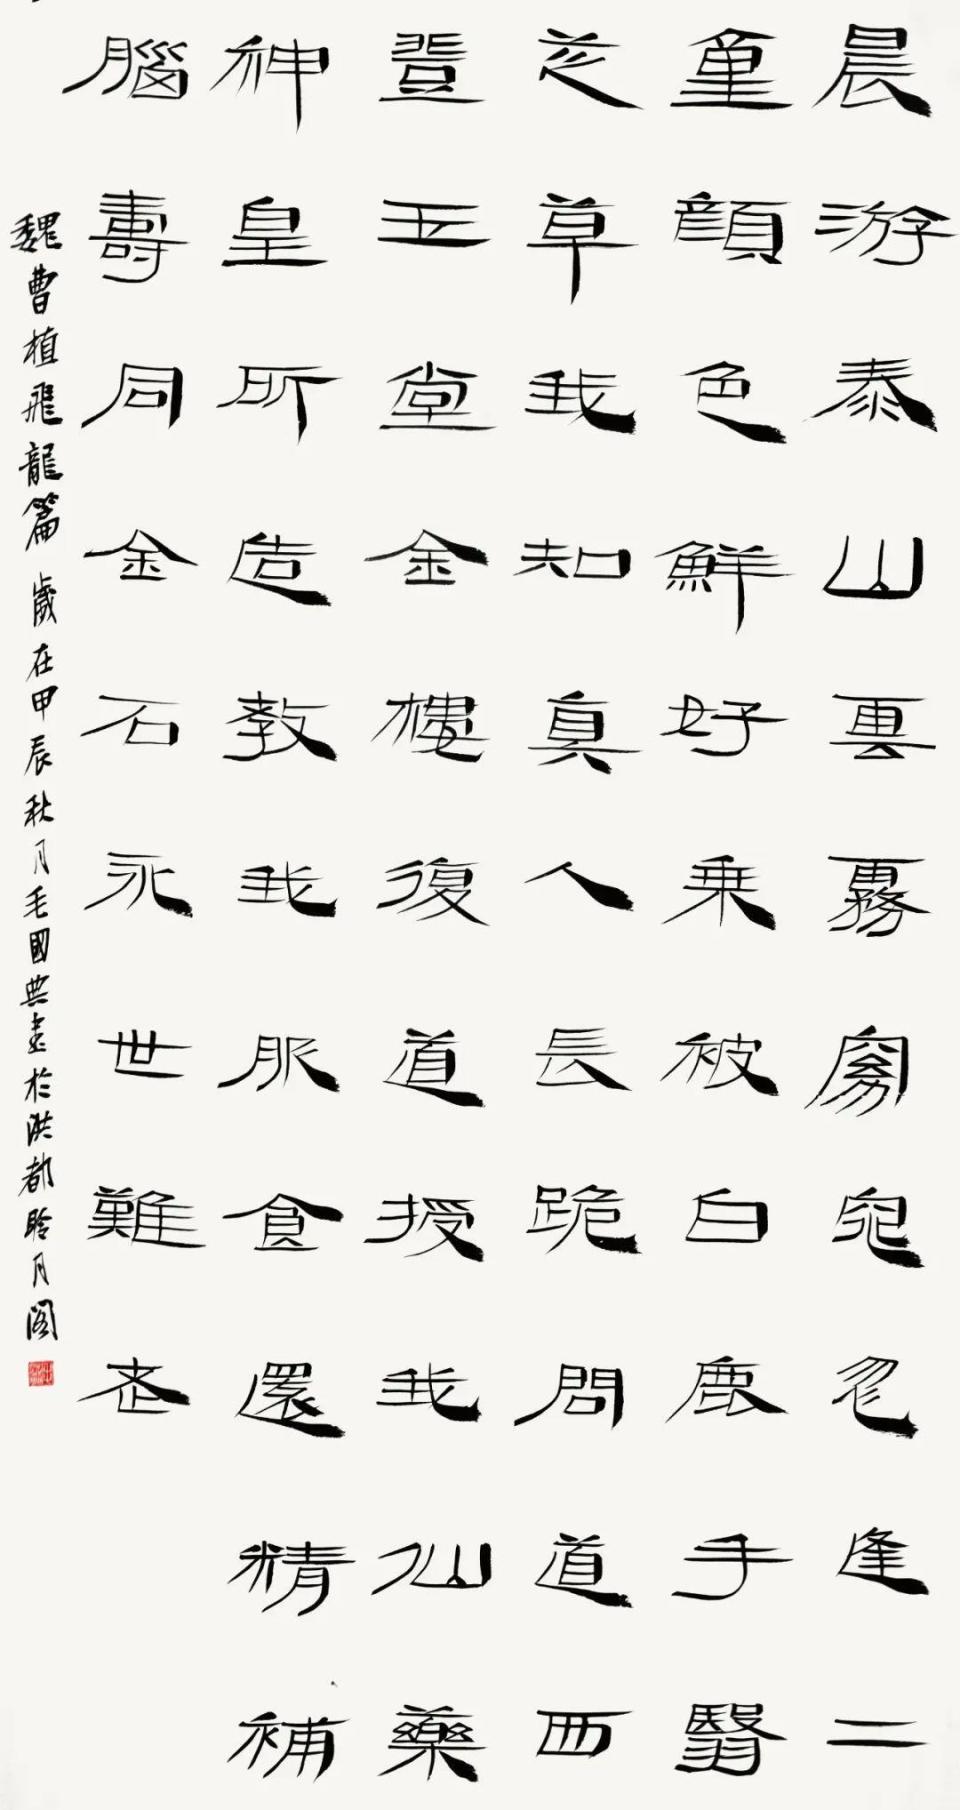 晨游泰山雲霧窈窕忽逢二
童顏色鮮好乘被白鹿手翳
芝草我知真人長跪問道西
登玉堂金樓復道授我仙藥
神皇所造教我服食還精補
腦壽同金石永世難老
魏曹植飛龍篇歲在甲辰秋月毛國典書於洪都聆月閣